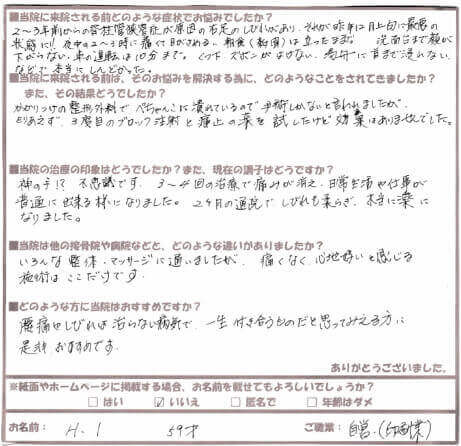 ■当院に来院される前どのような症状でお悩みでしたか？
2～3年前からの脊柱管狭窄症が原因の右足のしびれがあり、それが昨年12月上旬に最悪の
状態に!! 夜中の2～3時に痛くて目がさめる。朝食(和食)は立ったまま。洗面台で顔が
下がらない。車の運転は10分まで。くつ下 ズボンがはけない。湯舟に首まで浸れない。
など、本当にしんどかった。
■当院に来院される前は、そのお悩みを解決する為に、どのようなことをされてきましたか？
また、その結果どうでしたか？
かかりつけの整形外科で ぺちゃんこに潰れているので手術しかないと言われましたが、
とりあえず、3度目のブロック注射と痛止の薬を試したけど効果はありませんでした。
■当院の治療の印象はどうでしたか？また、現在の調子はどうですか？
神の手!? 不思議です。3～4回の治療で痛みが消え、日常生活や仕事が
普通に出来る様になりました。2ヶ月の通院でしびれも柔らぎ、本当に楽に
なりました。
■当院は他の接骨院や病院などと、どのような違いがありましたか？
いろんな整体・マッサージに通いましたが、痛くなく、心地好いと感じる
施術はここだけです。
■どのような方に当院はおすすめですか？
腰痛やしびれは治らない病気で、一生付き合うものだと思ってみえる方に
是非おすすめです。
ありがとうございました。
※紙面やホームページに掲載する場合、お名前を載せてもよろしいでしょうか？
□ はい ☑ いいえ □ 匿名で □ 年齢はダメ
お名前： H. I 59才 ご職業： 自営.(印刷業)